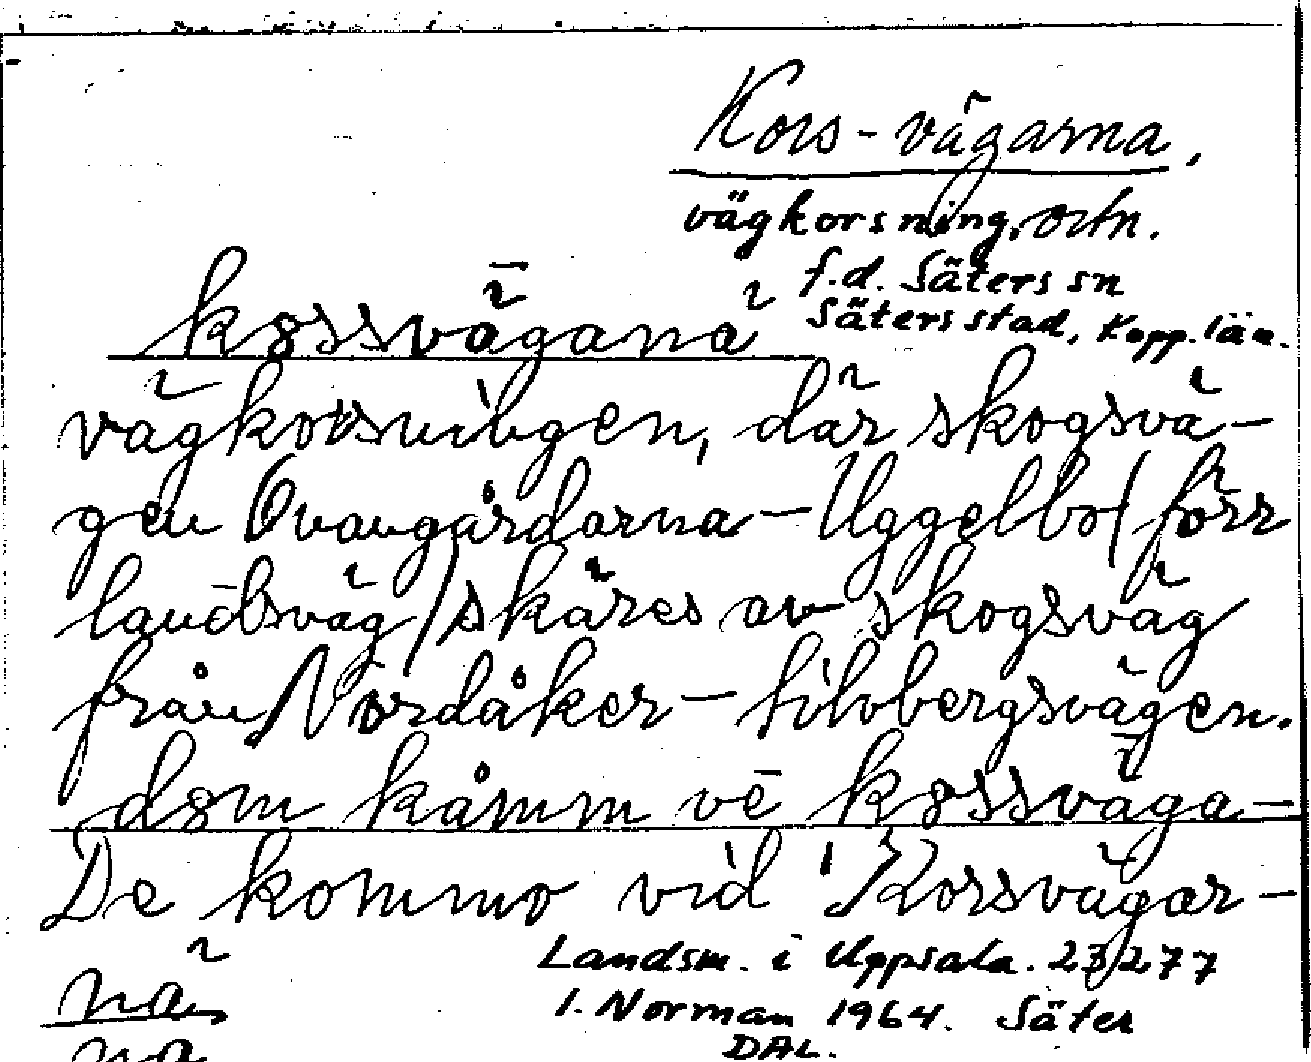 Kors-vägarna,
vägkorsning, ortn.
f.d. Säters sn
Säters stad, Kopp. län.
kossvägana
vägkorsningen, där skogsvä-
gen Ovangårdarna - Uggelbo (förr
landsväg) skäres av skogsväg
från Nordåker - Silvbergsvägen.
dom kåmm vē kossväga-
De kommo vid Korsvägar-
nä
na
Landsm. i Uppsala. 23277
I. Norman 1964. Säter
DAL.